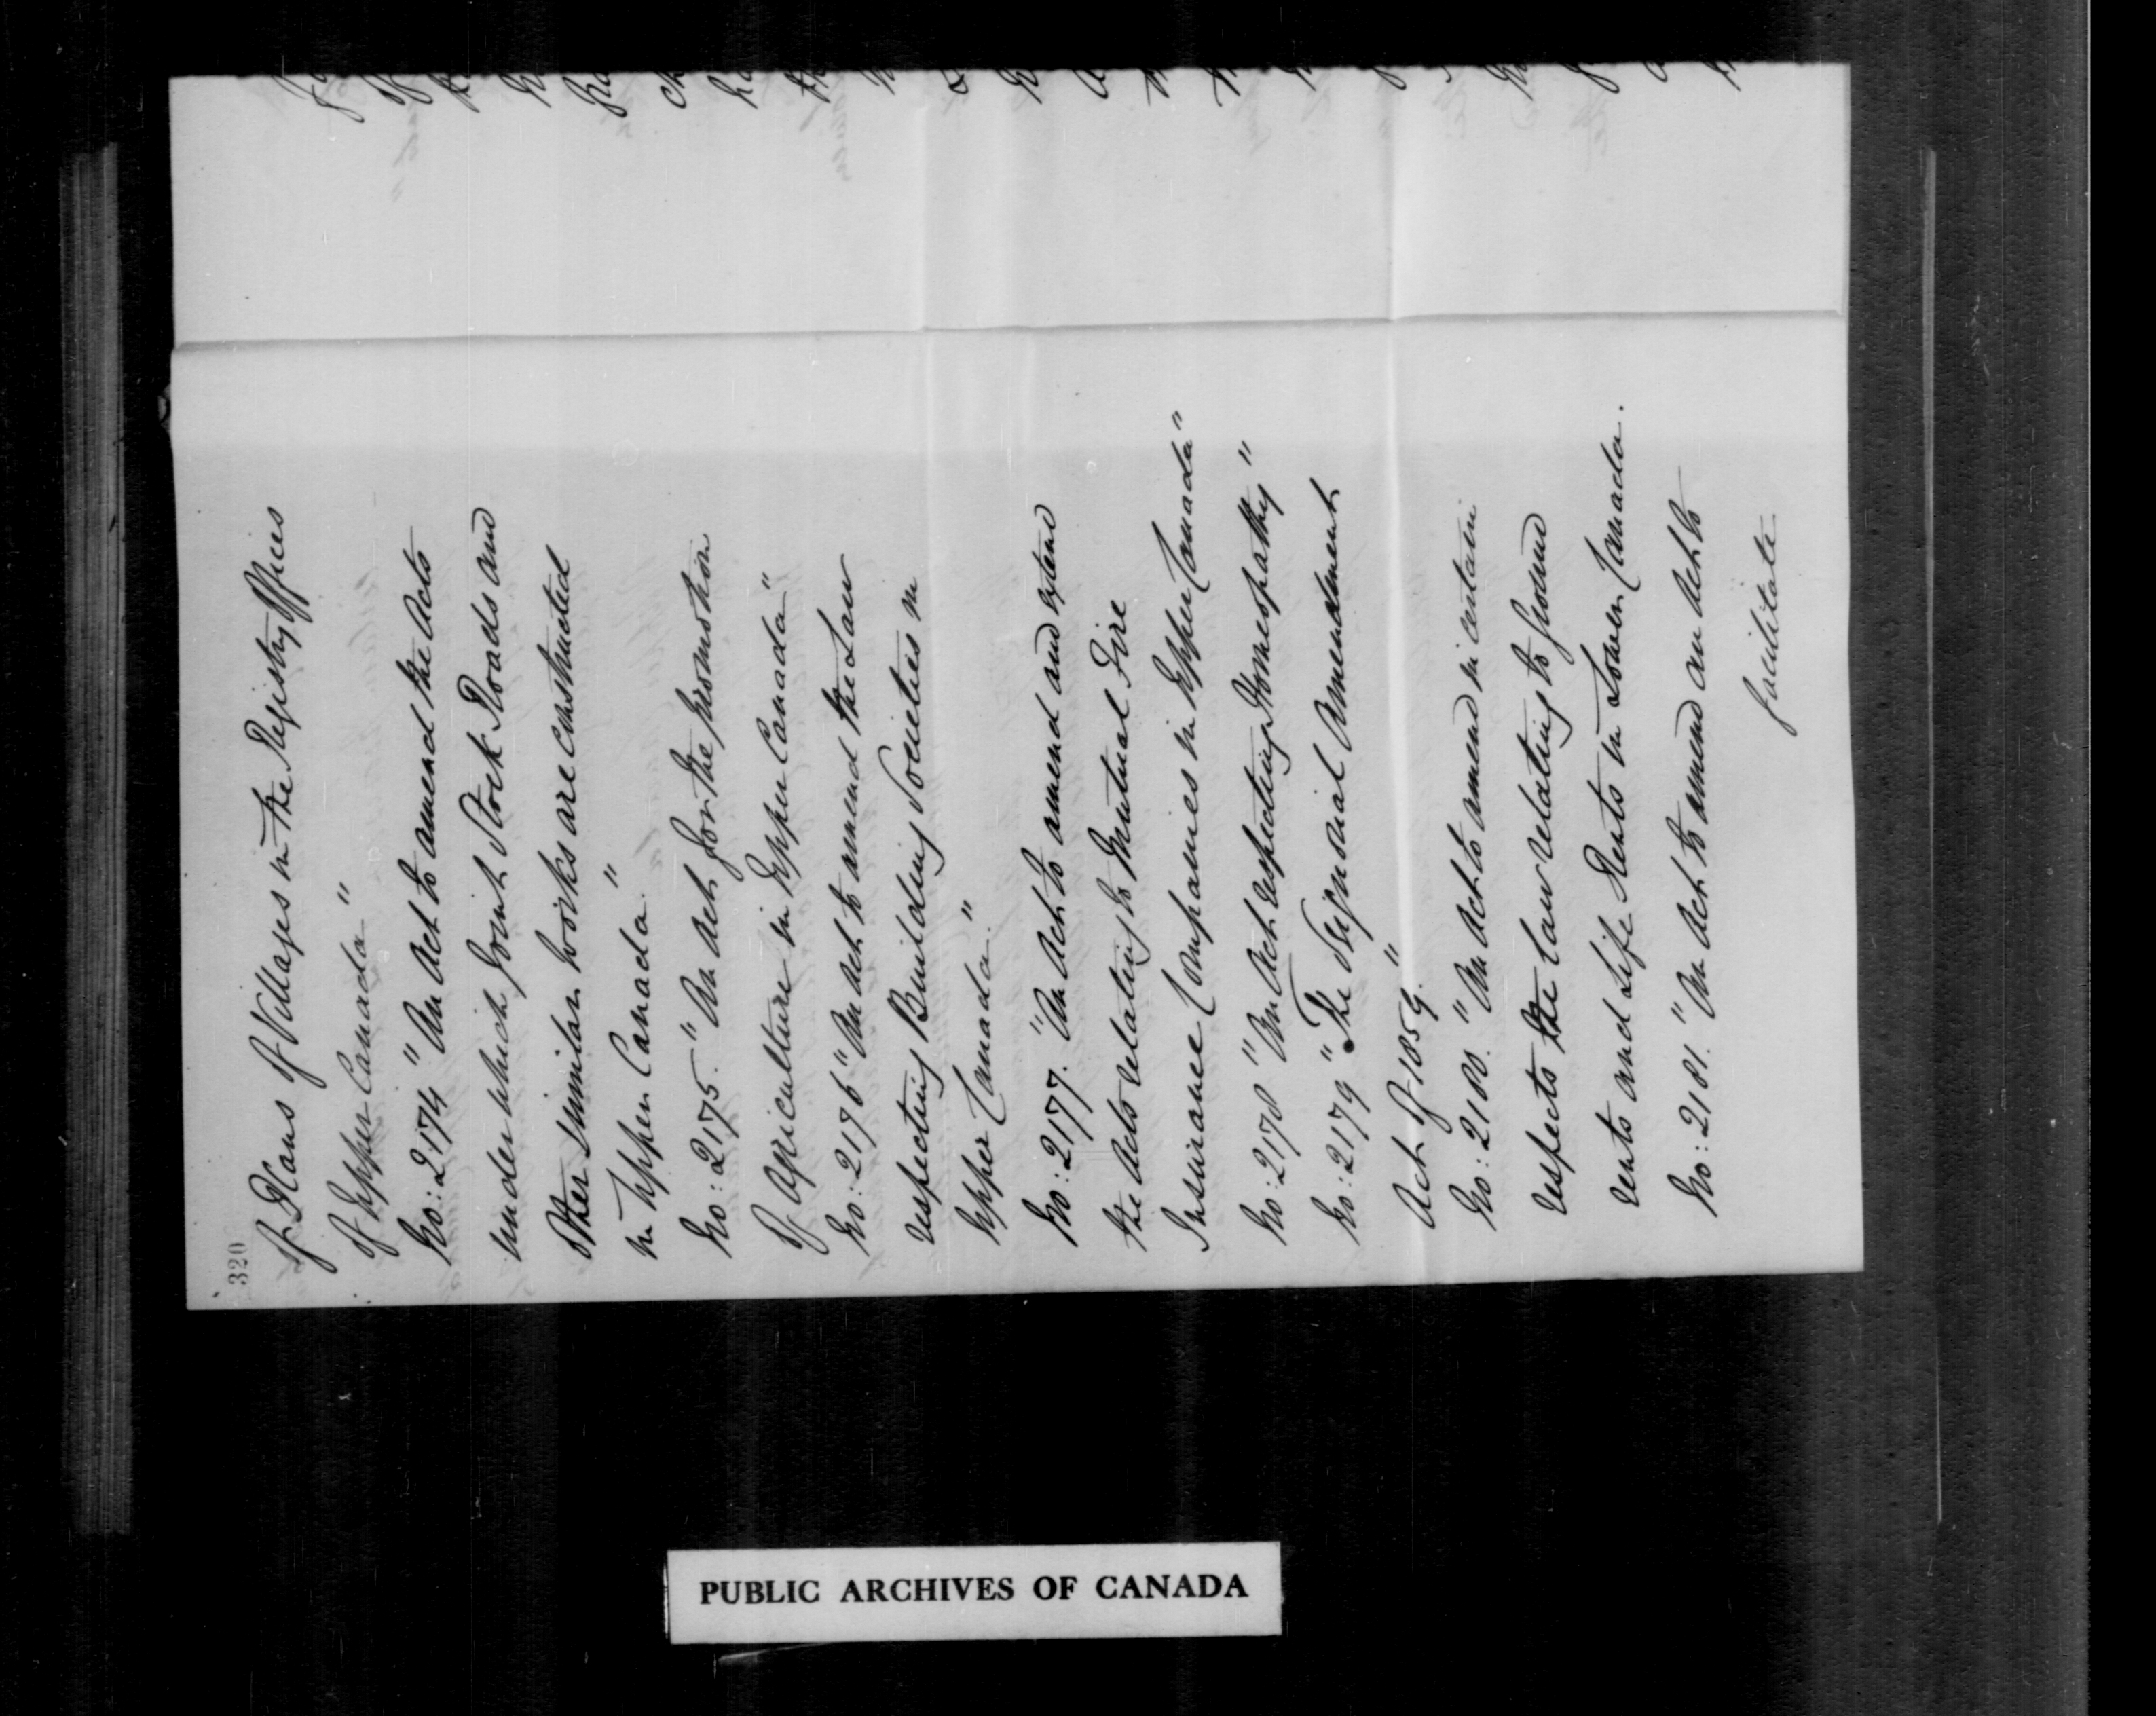 320
of Plans of Villages in the Registry Offices
of Upper Canada."
No: 2174 "An Act to amend the Acts
under which Joint Stock Roads and
other similar works are constructed
in Upper Canada."
No: 2175. "An Act for the promotion
of Agriculture in Upper Canada"
No: 2176 "An Act to amend the Law
respecting Building Societies in
Upper Canada."
No: 2177. "An Act to amend and extend
the Acts relating to Mutual Fire
Insurance Companies in Upper Canada"
No: 2178 "An Act respecting Homeopathy"
No: 2179 "The Seignorial Amendment
Act of 1859."
No: 2180. "An Act to amend in certain
respects the Law relating to Ground
rents and Life Rents in Lower Canada.
No: 2181. "An Act to amend an Act to
facilitate
PUBLIC ARCHIVES OF CANADA